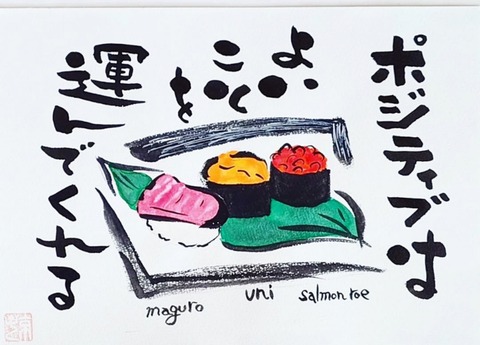 ポジティブは
運んでくれる
maguro
uni
salmon roe